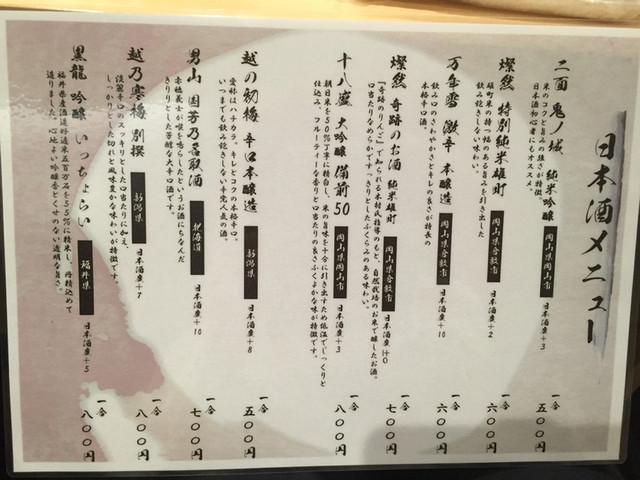 日本酒メニュー
二面 鬼ノ城 純米吟醸 岡山県岡山市 日本酒度+3 一合 五〇〇円
米のコクと旨みの強さが特徴。
日本酒初心者にもオススメ。
燦然 特別純米雄町 岡山県倉敷市 日本酒度+2 一合 六〇〇円
雄町米の持つ幅のある旨みを引き出した
飲み飽きしない味わい。
万年雪 激辛 本醸造 岡山県倉敷市 日本酒度+10 一合 六〇〇円
飲み口のさわやかさとキレの良さが特長の
本格辛口酒。
燦然 奇跡のお酒 純米雄町 岡山県倉敷市 日本酒度±0 一合 七〇〇円
「奇跡のりんご」で知られる木村氏指導のもと、自然栽培のお米で醸したお酒。
口当たりなめらかですっきりとしたふくらみのある味わい。
十八盛 大吟醸 備前50 岡山県岡山市 日本酒度+3 一合 八〇〇円
朝日米を50%丁寧に精白し、米の旨味を十分に引き出すため低温でじっくりと
仕込み、フルーティーな香りと口当たりの良さふくよかな味が特徴です。
越の初梅 辛口本醸造 新潟県 日本酒度+8 一合 五〇〇円
愛称はハチカラ。キレとコクの本格辛口。
いつまでも飲み飽きしない辛党人気の酒。
男山 国芳乃名取酒 北海道 日本酒度+10 一合 七〇〇円
赤穂義士が喉を鳴らしたというお酒にちなんだ
きりりとした芳醇な大辛口酒です。
越乃寒梅 別撰 新潟県 日本酒度+7 一合 八〇〇円
淡麗辛口のスッキリとした口当たりに加え、
しっかりとした切れと風味豊かな味わいが特徴です。
黒龍 吟醸 いっちょらい 福井県 日本酒度+5 一合 八〇〇円
福井県産酒造好適米五百万石を55%に精米し、丹精込めて
造りました。心地よい吟醸香とくせのない透明な旨さ。